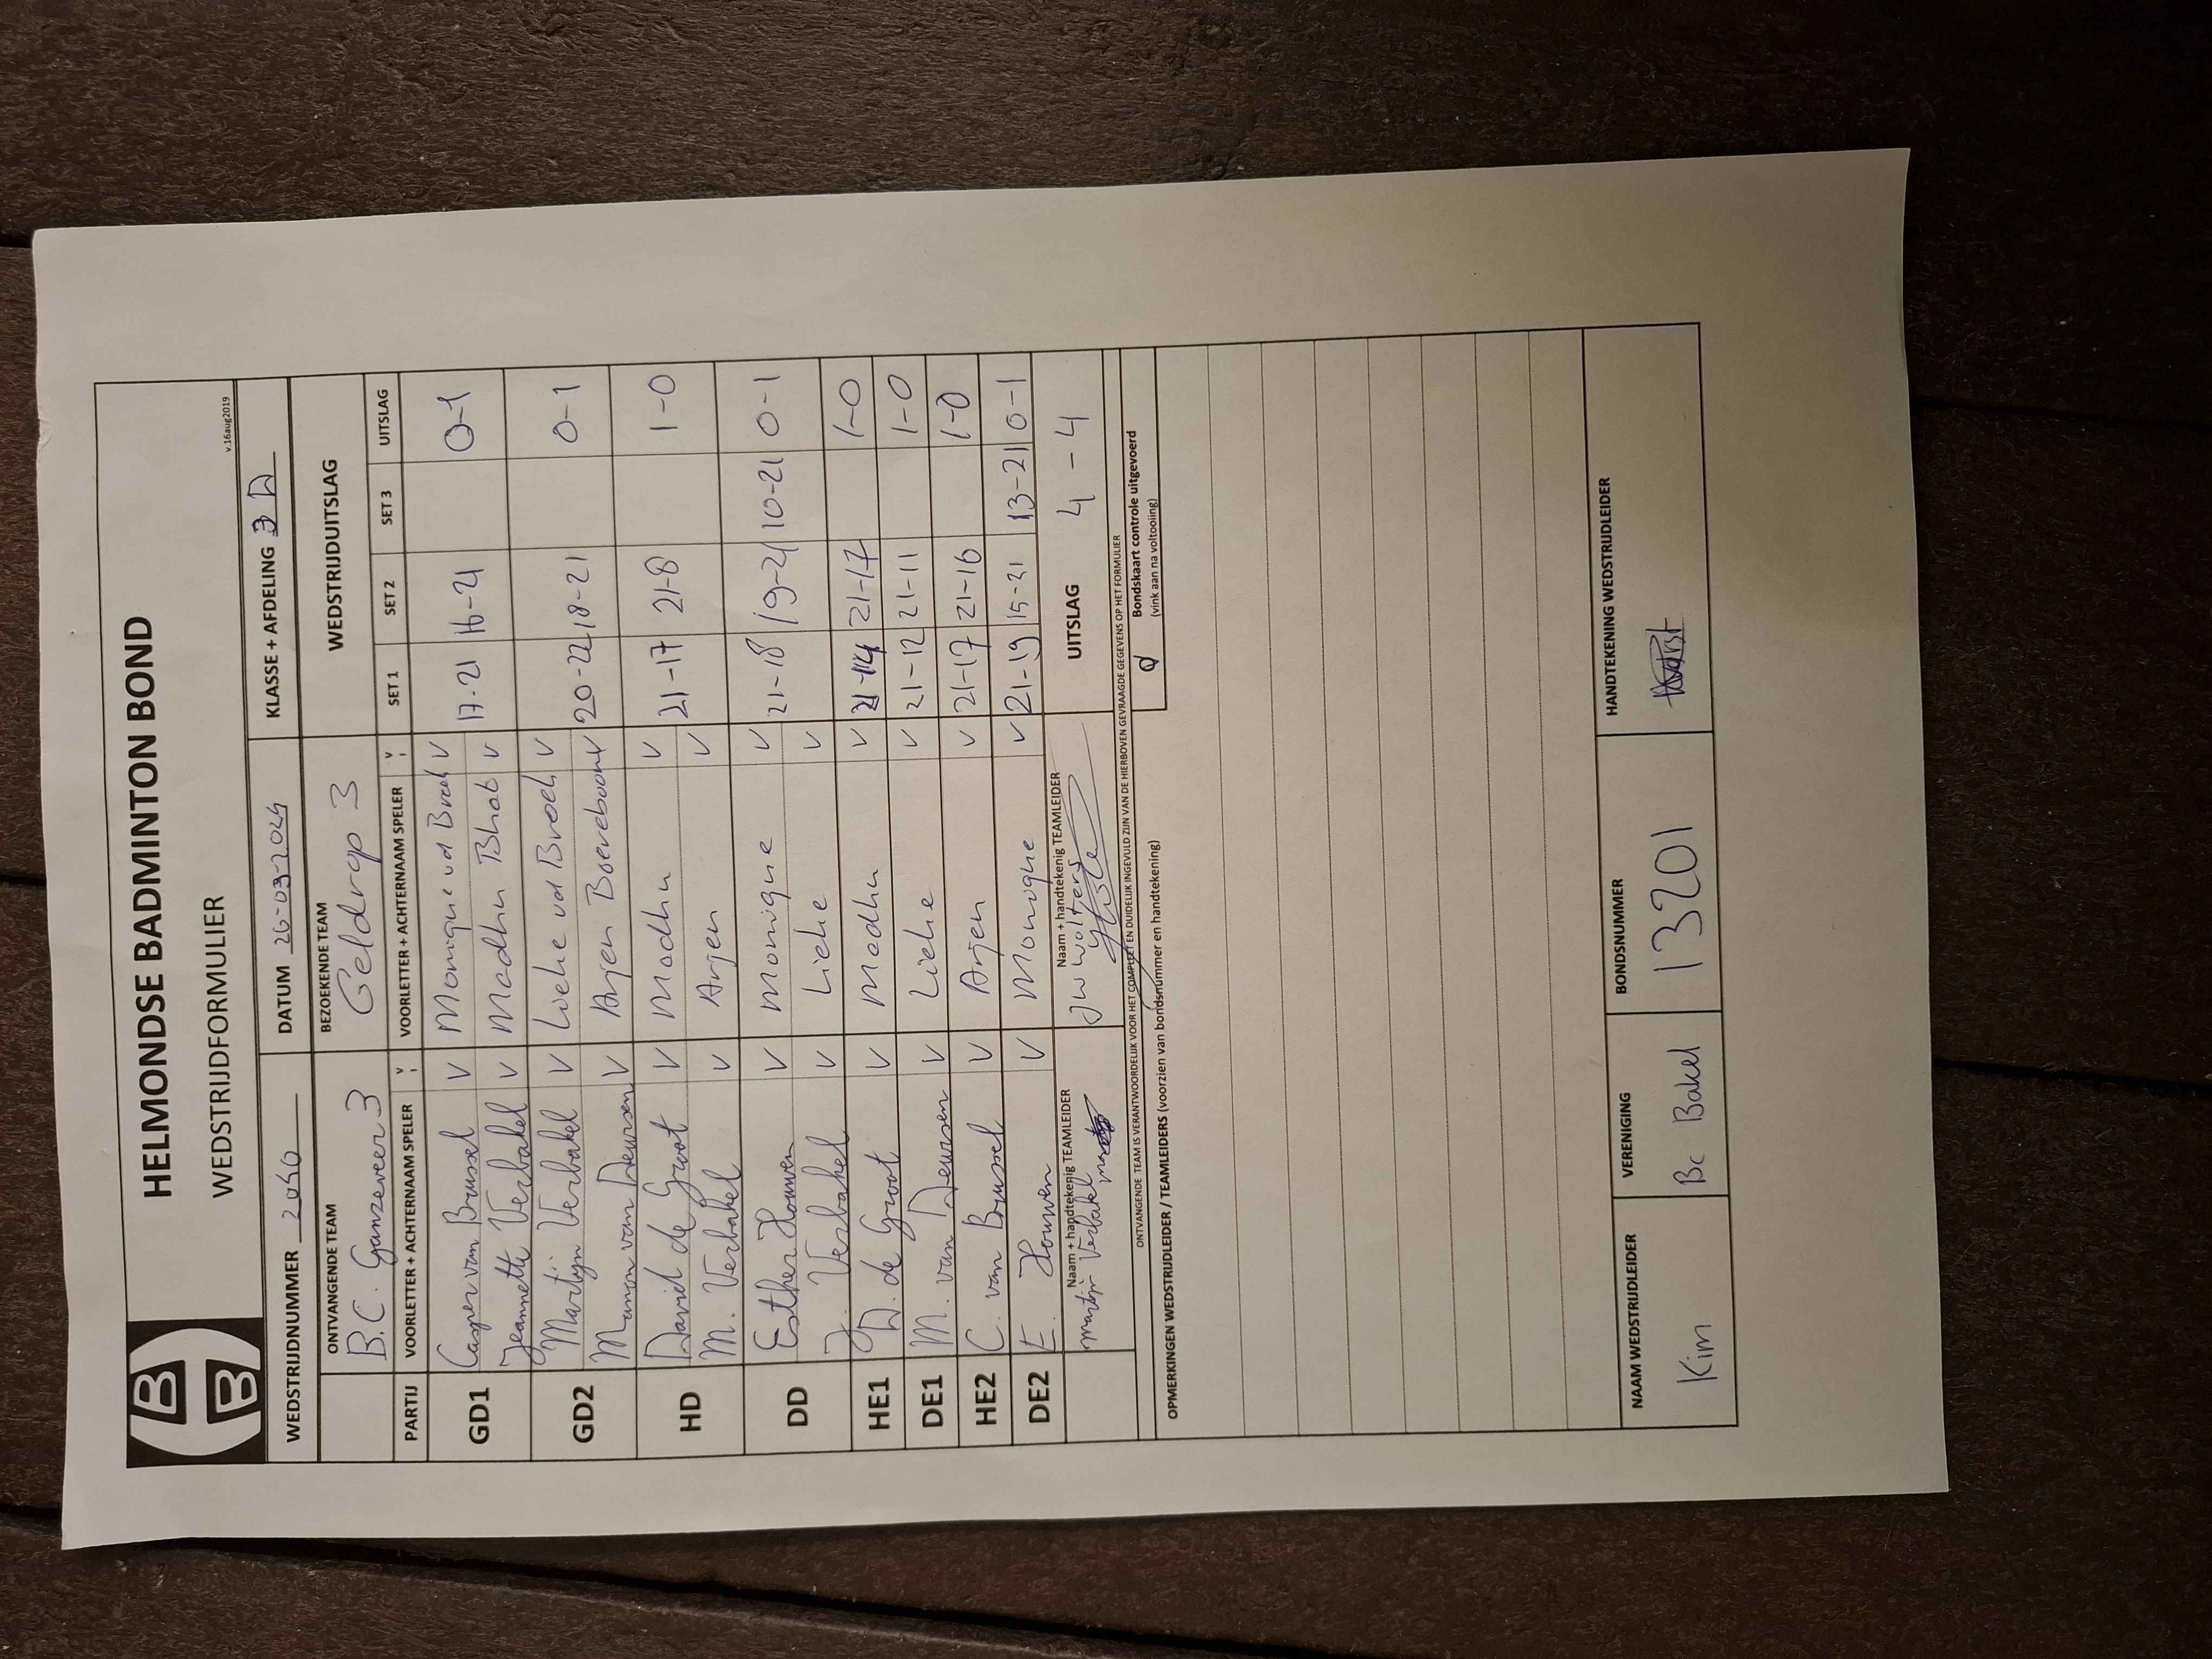 HELMONDSE BADMINTON BOND
WEDSTRIJDFORMULIER
v.16aug2019
WEDSTRIJDNUMMER 2050 DATUM 26-03-2024 KLASSE + AFDELING 3 D
ONTVANGENDE TEAM BEZOEKENDE TEAM WEDSTRIJDUITSLAG
B.C. Ganzeveer 3 Geldrop 3
PARTIJ VOORLETTER + ACHTERNAAM SPELER V VOORLETTER + ACHTERNAAM SPELER V SET 1 SET 2 SET 3 UITSLAG
GD1 Casper van Brussel V Monique vd Broek V 17-21 16-21 0-1
Jeannette Verbakel V Madhu Bhat V
GD2 Martijn Verbakel V Lieke vd Broek V 20-22 18-21 0-1
Manon van Deursen V Arjen Boereboom V
HD David de Groot V Madhu V 21-17 21-8 1-0
M. Verbakel V Arjen V
DD Esther Houwen V Monique V 21-18 19-21 10-21 0-1
J. Verbakel V Lieke V
HE1 D. de Groot V Madhu V 21-14 21-17 1-0
DE1 M. van Deursen V Lieke V 21-12 21-11 1-0
HE2 C. van Brussel V Arjen V 21-17 21-16 1-0
DE2 E. Houwen V Monique V 21-19 15-21 13-21 0-1
Naam + handtekenig TEAMLEIDER Naam + handtekenig TEAMLEIDER UITSLAG 4-4
Martijn Verbakel JW Wolters
ONTVANGENDE TEAM IS VERANTWOORDELIJK VOOR HET COMPLEET EN DUIDELIJK INGEVULD ZIJN VAN DE HIERBOVEN GEVRAAGDE GEGEVENS OP HET FORMULIER
Bondskaart controle uitgevoerd
(vink aan na voltooiing)
OPMERKINGEN WEDSTRIJDLEIDER / TEAMLEIDERS (voorzien van bondsnummer en handtekening)
NAAM WEDSTRIJDLEIDER VERENIGING BONDSNUMMER HANDTEKENING WEDSTRIJDLEIDER
Kim Bc Bakel 13201